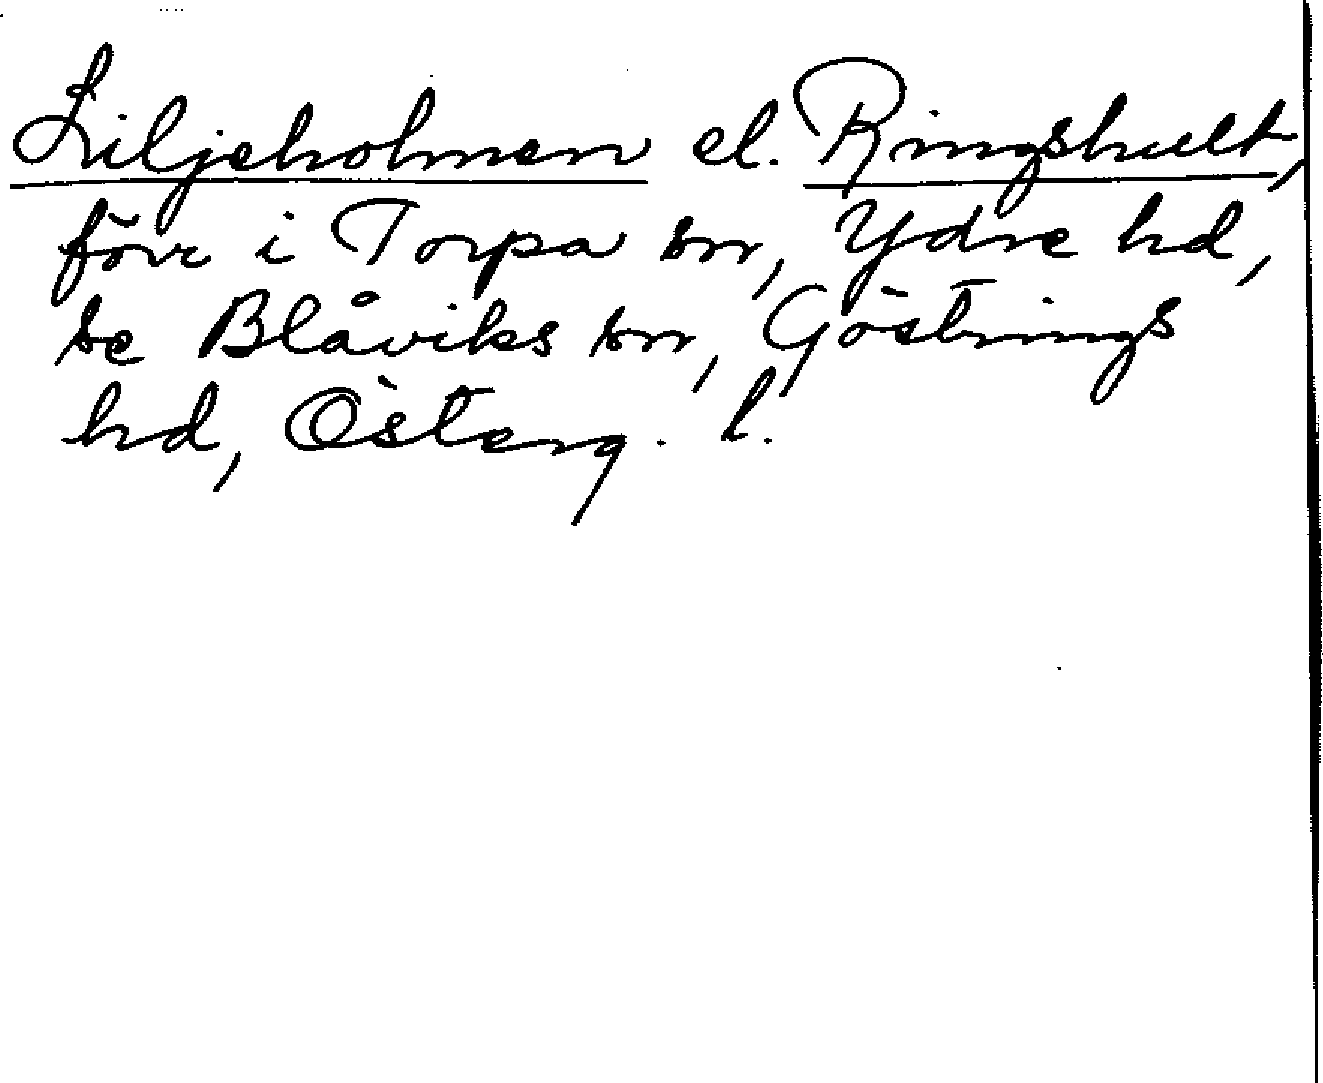 Liljeholmen el. Ringshult,
förr i Torpa sn, Ydre hd,
se Blåviks sn, Göstrings
hd, Österg. l.